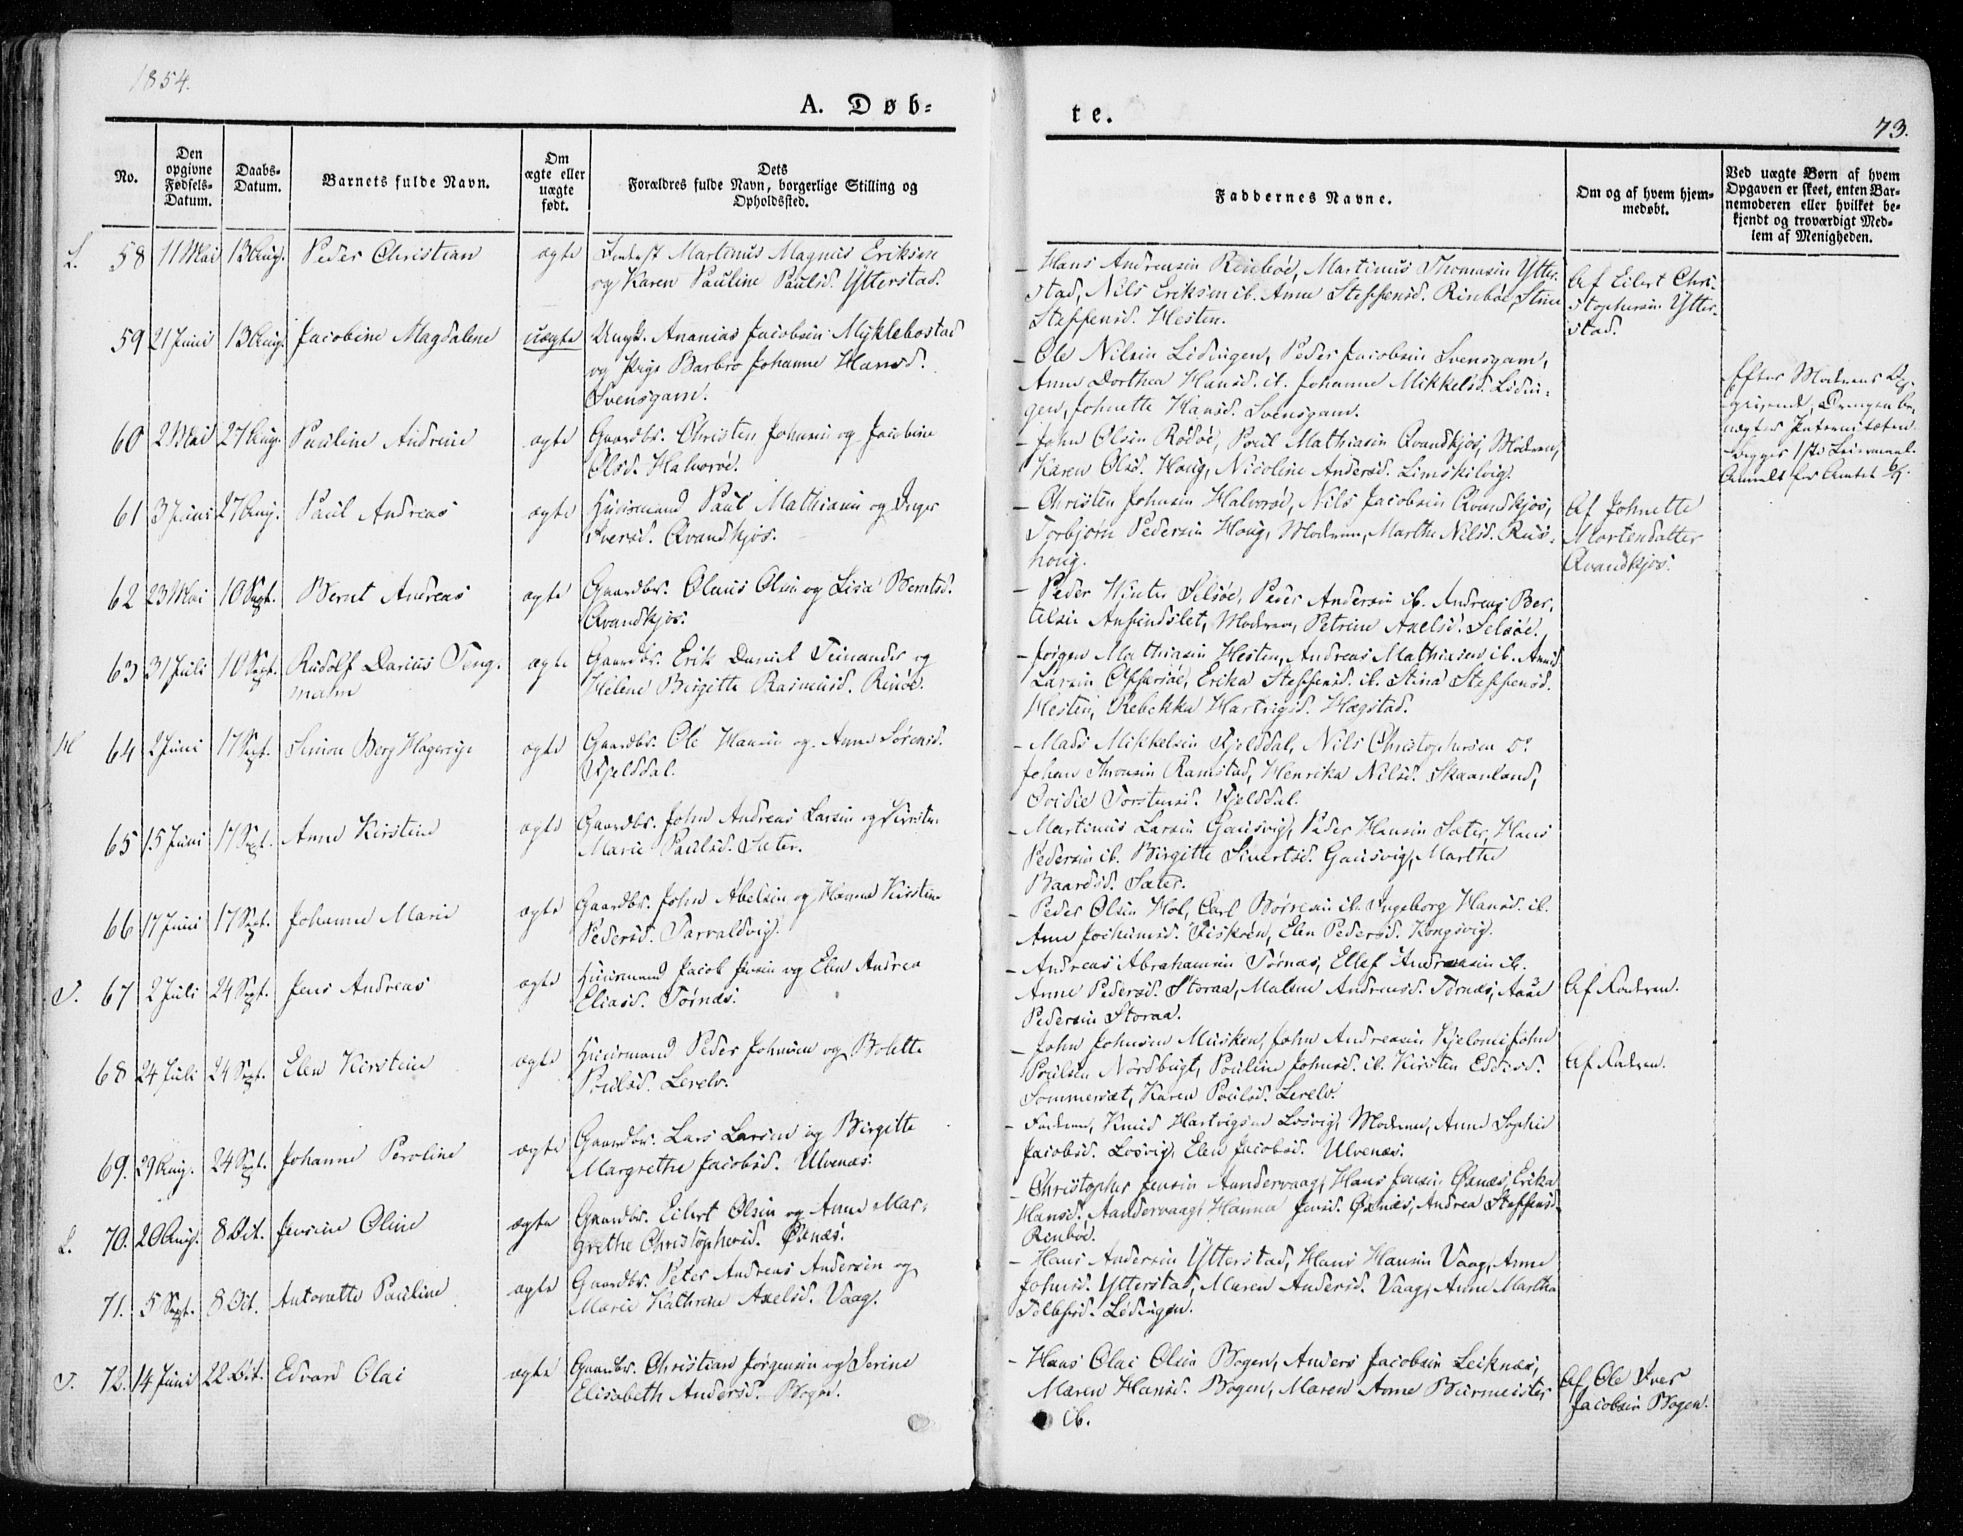 1854.
A. Døb-
te.
73.
No.
Den opgivne Fødsels-Datum.
Daabs-Datum.
Barnets fulde Navn.
Om ægte eller uægte født.
Dets Forældres fulde Navn, borgerlige Stilling og Opholdssted.
Faddernes Navne.
Om og af hvem hjem-medøbt.
Ved uægte Børn af hvem Opgaven er skeet, enten Bar-nemoderen eller hvilket be-kjendt og troværdigt Med-lem af Menigheden.
L. 58 11 Mai 13 Aug. Peder Christian ægte Inderst Martinus Magnus Eriksen
og Karen Pauline Paulsd. Ytterstad.
- Hans Andreasen Rinbøe, Martinus Thomasen Ytter-
stad, Nils Eriksen ib. Anne Steffensd. Rinbøe, Stine
Steffensd. Hesten.
Af Eilert Chri-
stophersen Ytter-
stad.
59 21 Juni 13 Aug. Jacobine Magdalene uægte Ungk. Ananias Jacobsen Myklebostad
og Pige Barbro Johanne Hansd.
Svensgam.
- Ole Nilsen Lødingen, Peder Jacobsen Svensgam,
Anne Dorthea Hansd. ib. Johanne Mikkelsd. Lødin-
gen, Johnette Hansd. Svensgam.
Efter Moderens
60 2 Mai 27 Aug. Pauline Andrine ægte Gaardbr. Christen Johnsen og Jacobine
Olsd. Halvorøe.
- John Olsen Rødøe, Poul Mathiasen Qvandkjos, Moderen,
Karen Olsd. Houg, Nicoline Andersd. Limskilvig.
61 3 Juni 27 Aug. Paul Andreas ægte Huusmand Paul Mathiasen og Inger
Iversd. Qvandkjos.
- Christen Johnsen Halvorøe, Nils Jacobsen Qvandkjos,
Torbjørn Pedersen Houg, Moderen, Marthe Nilsd. Rus-
houg.
Af Johnette
Mortensdatter
Qvandkjos.
62 23 Mai 10 Sept. Bernt Andreas ægte Gaardbr. Olaus Olsen og Lisa Berntsd.
Qvandkjos.
- Peder Winter Selsøe, Peder Andersen ib. Andreas Ber-
telsen Ansfindslet, Moderen, Petrine Axelsd. Selsøe.
63 31 Juli 10 Sept. Rudolf Darius Teng-
mann ægte Gaardbr. Erik Daniel Teinander og
Helene Birgitte Rasmusd. Rinøe.
- Jørgen Mathiasen Hesten, Andreas Mathiasen ib.
Larsen Offersøe, Erika Steffensd. ib. Stina Steffensd.
Hesten, Rebekka Hartvigsd. Hægstad.
64 2 Juni 17 Sept. Simon Berg Hagerup ægte Gaardbr. Ole Hansen og Anne Sørensd.
Fjelddal.
- Mads Mikkelsen Fjelddal, Nils Christophersen do
Johan Thomsen Ramstad, Henrika Nilsd. Skaanland,
Ovidie Torstensd. Fjelddal.
65 15 Juni 17 Sept. Anne Kirstine ægte Gaardbr. John Andreas Larsen og Kirsten
Marie Paulsd. Sæter.
- Martinus Larsen Gausvig, Peder Hansen Sæter, Hans
Pedersen ib. Birgitte Sivertsd. Gausvig, Marthe
Baardsd. Sæter.
66 17 Juni 17 Sept. Johanne Marie ægte Gaardbr. John Abelsen og Hanna Kirstine
Pedersd. Tarvaldvig.
- Peder Olsen Hol, Carl Børresen ib. Ingeborg Hansd. ib.
Anne Jochumsd. Fiskøen, Elen Pedersd. Kongsvig.
T. 67 2 Juli 24 Sept. Jens Andreas ægte Huusmand Jacob Jensen og Elen Andrea
Eliasd. Tørnæs.
- Andreas Abrahamsen Tørnæs, Ellef Andreasen ib.
Anne Pedersd. Storaa, Malene Andreasd. Tørnæs, Aase
Pedersen Storaa.
Af Faderen.
68 24 Juli 24 Sept. Elen Kirstine ægte Huusmand Peder Johnsen og Bolette
Poulsd. Lerelv.
- John Johnsen Musken, John Andreasen Kjelomi, John
Poulsen Nordbugt, Pauline Johnsd. ib. Kirsten
Sommersæt, Karen Poulsd. Lerelv.
Af Faderen.
69. 29 Aug. 24 Sept. Johanne Peroline ægte Gaardbr. Lars Larsen og Birgitte
Margrethe Jacobsd. Ulvenæs.
- Faderen, Knud Hartvigsen Losvig, Moderen, Anne Sophie
Jacobsd. Losvig, Elen Jacobsd. Ulvenæs.
L. 70. 20 Aug. 8 Oct. Jensine Oline ægte Gaardbr. Eilert Olsen og Anne Mar-
grethe Christophersd. Øxnæs.
- Christopher Jensen Aandervaag, Hans Jensen Øxnæs, Erika
Hansd. Aandervaag, Hanna Jensd. Øxnæs, Andrea Steffensd.
Renbøe.
71. 5 Sept. 8 Oct. Antonette Pauline ægte Gaardbr. Peter Andreas Andersen og
Marie Kathrine Axelsd. Vaag.
- Hans Andersen Ytterstad, Hans Hansen Vaag, Anne
Johnsd. Ytterstad, Maren Andersd. Vaag, Anne Martha
Tollefsd. Lødingen.
T. 72. 14 Juni 22 Oct. Edvard Olai ægte Gaardbr. Christian Jørgensen og Serine
Elisabeth Andersd. Bogen.
- Hans Olai Olsen Bogen, Anders Jacobsen Leiknæs,
Maren Hansd. Bogen, Maren Anne Burmeister
ib.
Af Ole Iver
Jacobsen Bogen.